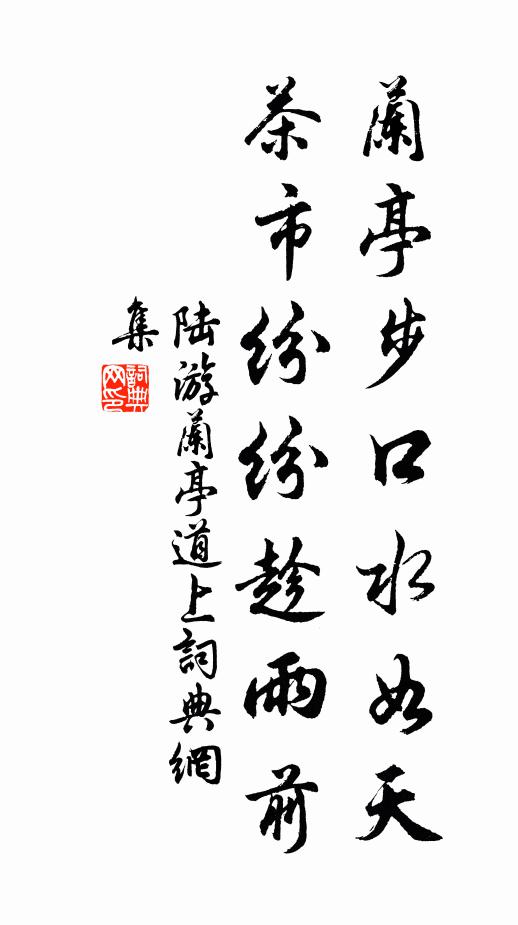 蘭亭步口水如天
茶市紛紛趁雨前
陸游蘭亭道上詞典網
集
詞典
网印